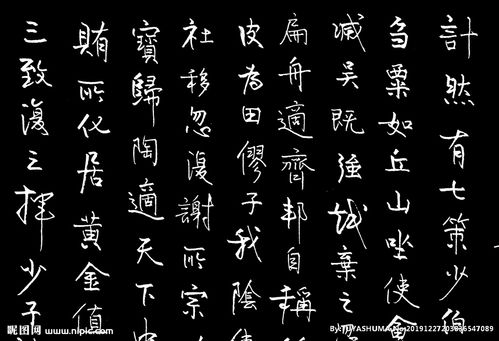 計然有七策少伯
芻粟如丘山坐使會
滅吳既強越棄之
扁舟適齊邦自稱
皮為田僇子我陰使
社移忽復謝所宗
寶歸陶適天下中
賄所化居黃金值
三致復之揮少子
昵图网 www.nipic.com